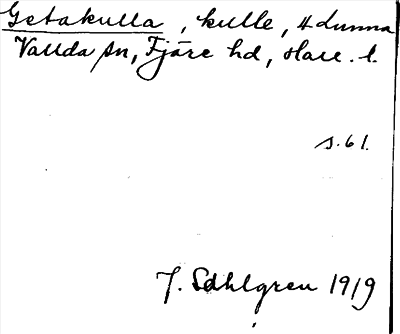 Getakulla, kulle,
Vallda sn, Fjäre hd, Hall. l.
s. 61.
J. Sahlgren 1919